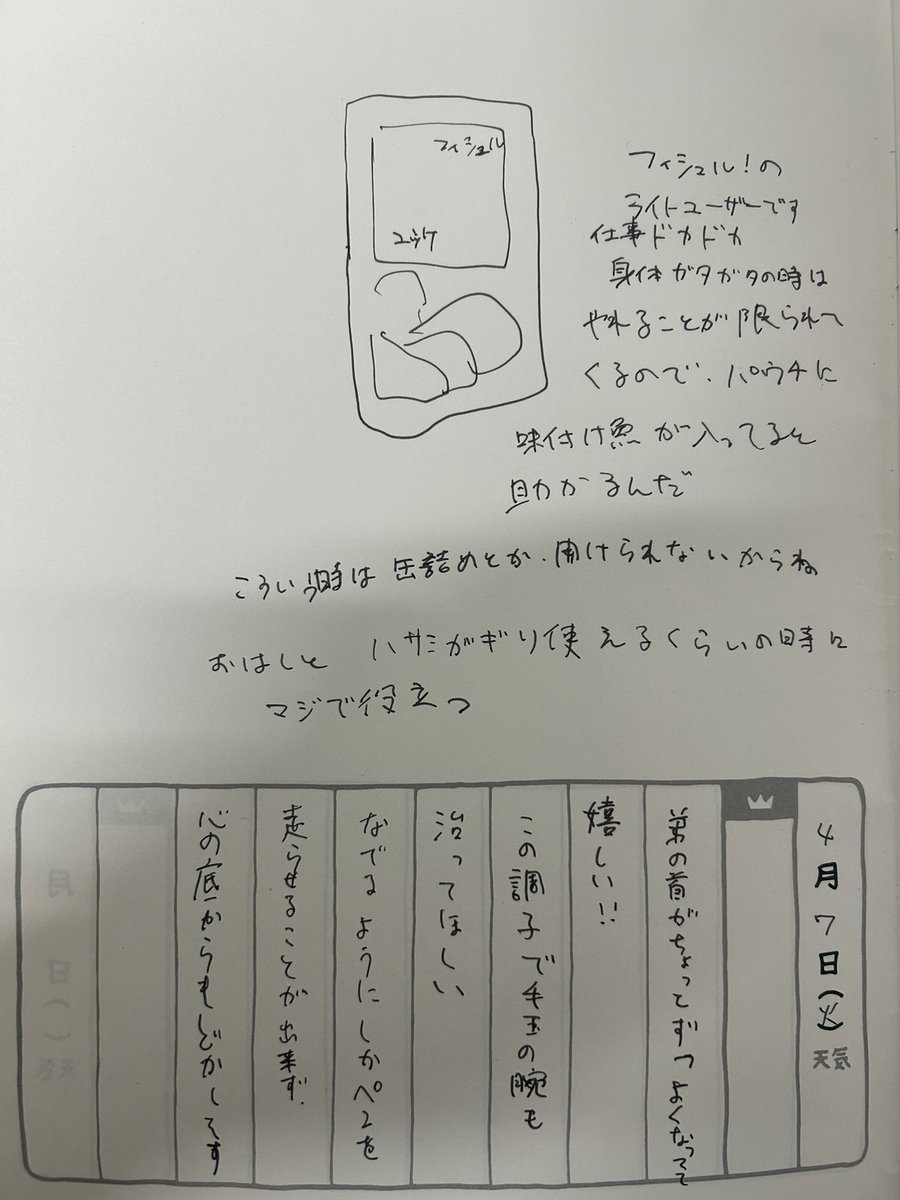 フィシュル
ユッケ
フィシュル!の
ライトユーザーです
仕事ドカドカ
身体ガタガタの時は
やれることが限られて
くるので、パウチに
味付け魚が入ってると
助かるんだ
こういう時は缶詰めとか、開けられないからね
おはしと ハサミがギリ使えるくらいの時に
マジで役立つ
4月7日(火) 天気
弟の首がちょっとずつよくなってて
嬉しい!!
この調子での腕も
治ってほしい
なでるようにしかペンを
走らせることが出来ず、
心の底からもどかしいです
月 日( ) 天気